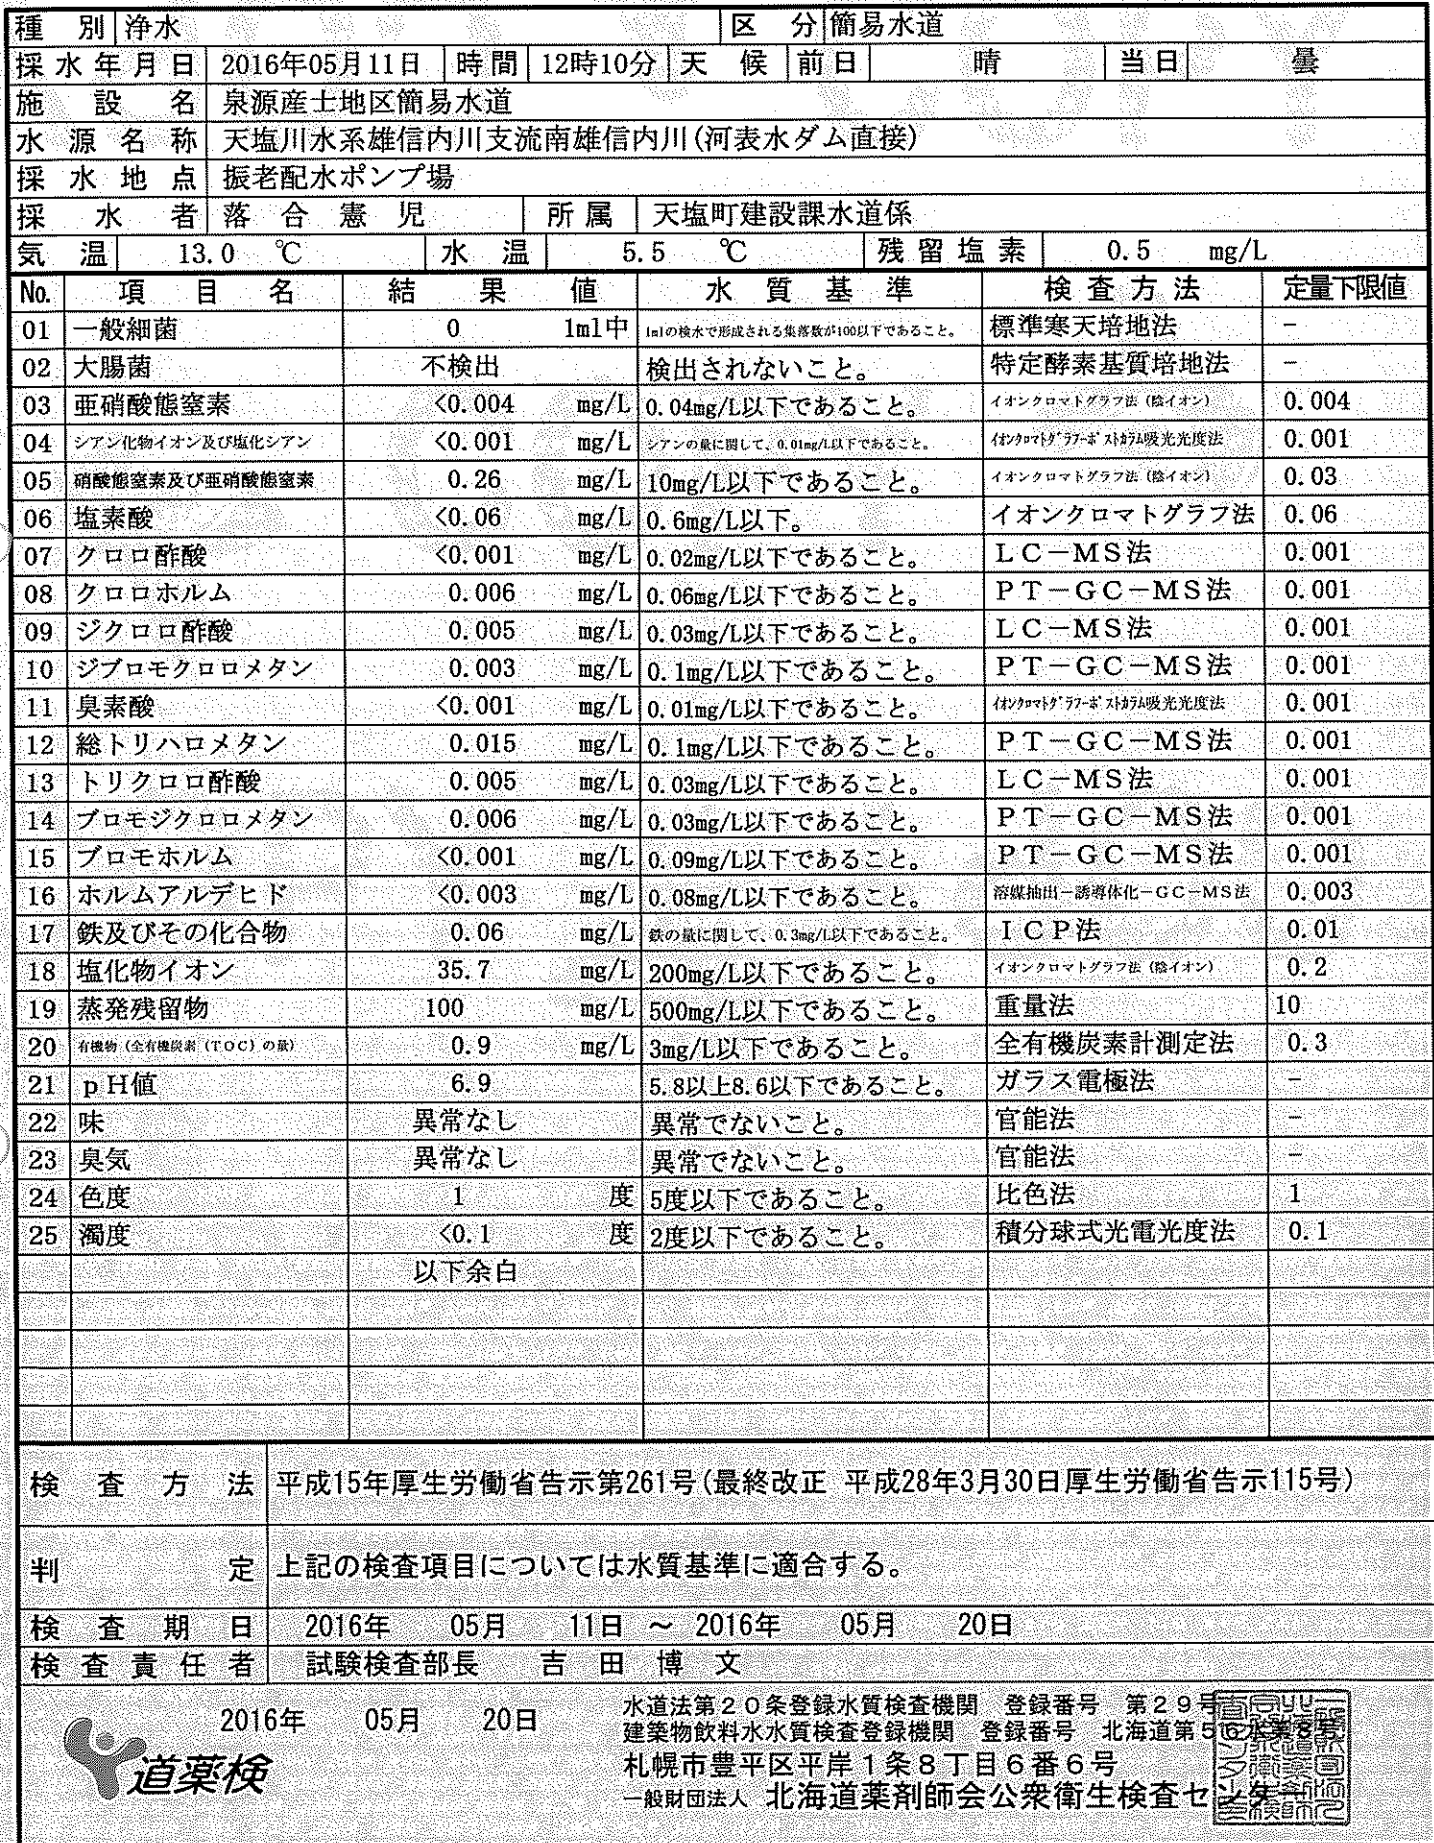 種別 浄水 区分 簡易水道
採水年月日 2016年05月11日 時間 12時10分 天候 前日 晴 当日 曇
施設名 泉源産士地区簡易水道
水源名称 天塩川水系雄信内川支流南雄信内川(河表水ダム直接)
採水地点 振老配水ポンプ場
採水者 落合憲児 所属 天塩町建設課水道係
気温 13.0 ℃ 水温 5.5 ℃ 残留塩素 0.5 mg/L
No. 項目名 結果値 水質基準 検査方法 定量下限値
01 一般細菌 0 1ml中 1mlの検水で形成される集落数が100以下であること。 標準寒天培地法 －
02 大腸菌 不検出 検出されないこと。 特定酵素基質培地法 －
03 亜硝酸態窒素 <0.004 mg/L 0.04mg/L以下であること。 イオンクロマトグラフ法（陰イオン） 0.004
04 シアン化物イオン及び塩化シアン <0.001 mg/L シアンの量に関して、0.01mg/L以下であること。 ｲｵﾝｸﾛﾏﾄｸﾞﾗﾌｰﾎﾟｽﾄｶﾗﾑ吸光光度法 0.001
05 硝酸態窒素及び亜硝酸態窒素 0.26 mg/L 10mg/L以下であること。 イオンクロマトグラフ法（陰イオン） 0.03
06 塩素酸 <0.06 mg/L 0.6mg/L以下。 イオンクロマトグラフ法 0.06
07 クロロ酢酸 <0.001 mg/L 0.02mg/L以下であること。 ＬＣ－ＭＳ法 0.001
08 クロロホルム 0.006 mg/L 0.06mg/L以下であること。 ＰＴ－ＧＣ－ＭＳ法 0.001
09 ジクロロ酢酸 0.005 mg/L 0.03mg/L以下であること。 ＬＣ－ＭＳ法 0.001
10 ジブロモクロロメタン 0.003 mg/L 0.1mg/L以下であること。 ＰＴ－ＧＣ－ＭＳ法 0.001
11 臭素酸 <0.001 mg/L 0.01mg/L以下であること。 ｲｵﾝｸﾛﾏﾄｸﾞﾗﾌｰﾎﾟｽﾄｶﾗﾑ吸光光度法 0.001
12 総トリハロメタン 0.015 mg/L 0.1mg/L以下であること。 ＰＴ－ＧＣ－ＭＳ法 0.001
13 トリクロロ酢酸 0.005 mg/L 0.03mg/L以下であること。 ＬＣ－ＭＳ法 0.001
14 ブロモジクロロメタン 0.006 mg/L 0.03mg/L以下であること。 ＰＴ－ＧＣ－ＭＳ法 0.001
15 ブロモホルム <0.001 mg/L 0.09mg/L以下であること。 ＰＴ－ＧＣ－ＭＳ法 0.001
16 ホルムアルデヒド <0.003 mg/L 0.08mg/L以下であること。 溶媒抽出－誘導体化－ＧＣ－ＭＳ法 0.003
17 鉄及びその化合物 0.06 mg/L 鉄の量に関して、0.3mg/L以下であること。 ＩＣＰ法 0.01
18 塩化物イオン 35.7 mg/L 200mg/L以下であること。 イオンクロマトグラフ法（陰イオン） 0.2
19 蒸発残留物 100 mg/L 500mg/L以下であること。 重量法 10
20 有機物（全有機炭素（TOC）の量） 0.9 mg/L 3mg/L以下であること。 全有機炭素計測定法 0.3
21 ｐH値 6.9 5.8以上8.6以下であること。 ガラス電極法 －
22 味 異常なし 異常でないこと。 官能法 －
23 臭気 異常なし 異常でないこと。 官能法 －
24 色度 1 度 5度以下であること。 比色法 1
25 濁度 <0.1 度 2度以下であること。 積分球式光電光度法 0.1
以下余白
検査方法 平成15年厚生労働省告示第261号(最終改正 平成28年3月30日厚生労働省告示115号)
判定 上記の検査項目については水質基準に適合する。
検査期日 2016年 05月 11日 ～ 2016年 05月 20日
検査責任者 試験検査部長 吉田博文
2016年 05月 20日
道薬検
水道法第２０条登録水質検査機関 登録番号 第２９号
建築物飲料水水質検査登録機関 登録番号 北海道第５６水第８号
札幌市豊平区平岸１条８丁目６番６号
一般財団法人 北海道薬剤師会公衆衛生検査センター